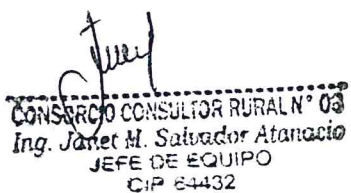 CONSORCIO CONSULTOR RURAL N° 03
Ing. Janet M. Salvador Atanacio
JEFE DE EQUIPO
CIP 64432